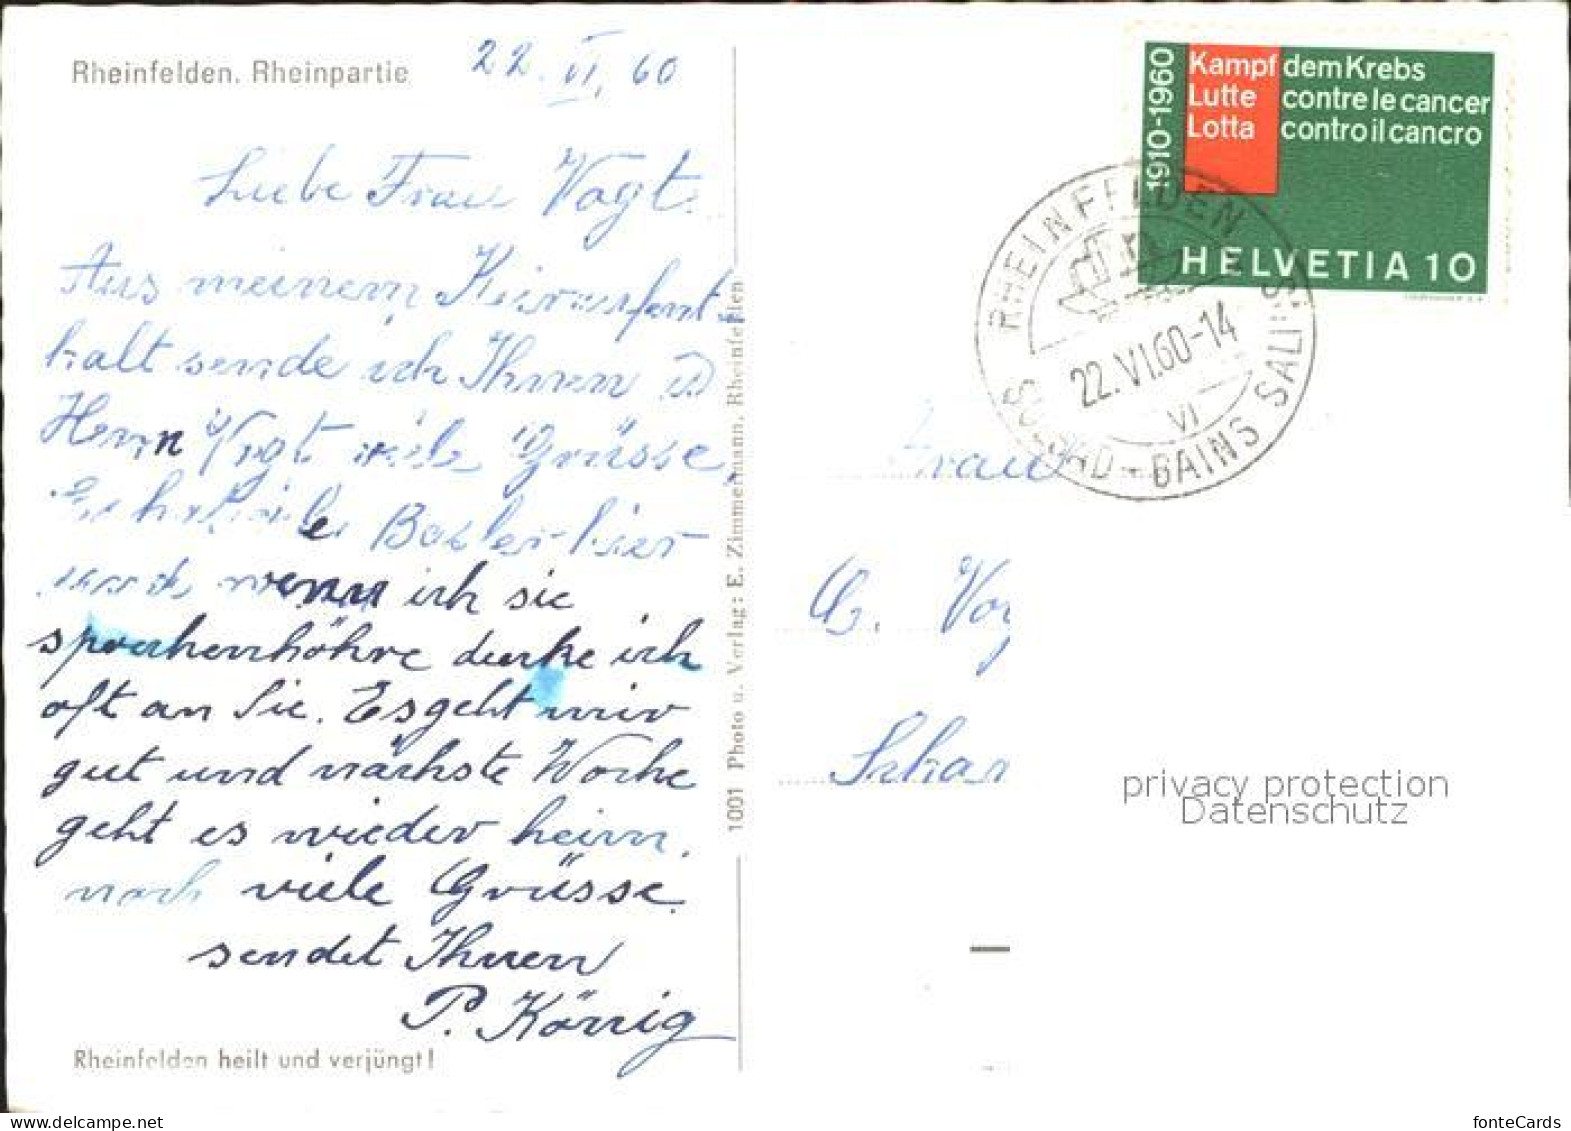 Rheinfelden. Rheinpartie
22. VI. 60
Liebe Frau Vogt.
Aus meinem Kuraufent-
halt sende ich Ihnen u
Herrn Vogt viele Grüsse,
Es hat viele Basler hier
und wenn ich sie
sprechenhöhre denke ich
oft an Sie. Es geht mir
gut und nächste Woche
geht es wieder heim.
noch viele Grüsse.
sendet Ihnen
P. König
Rheinfelden heilt und verjüngt!
1001 Photo u. Verlag: E. Zimmermann, Rheinfelden
1910-1960
Kampf dem Krebs
Lutte contre le cancer
Lotta contro il cancro
HELVETIA 10
RHEINFELDEN
22.VI.60-14
VI
SOLBAD - BAINS SALINS
Frau
Vog
privacy protection
Datenschutz
fonteCards